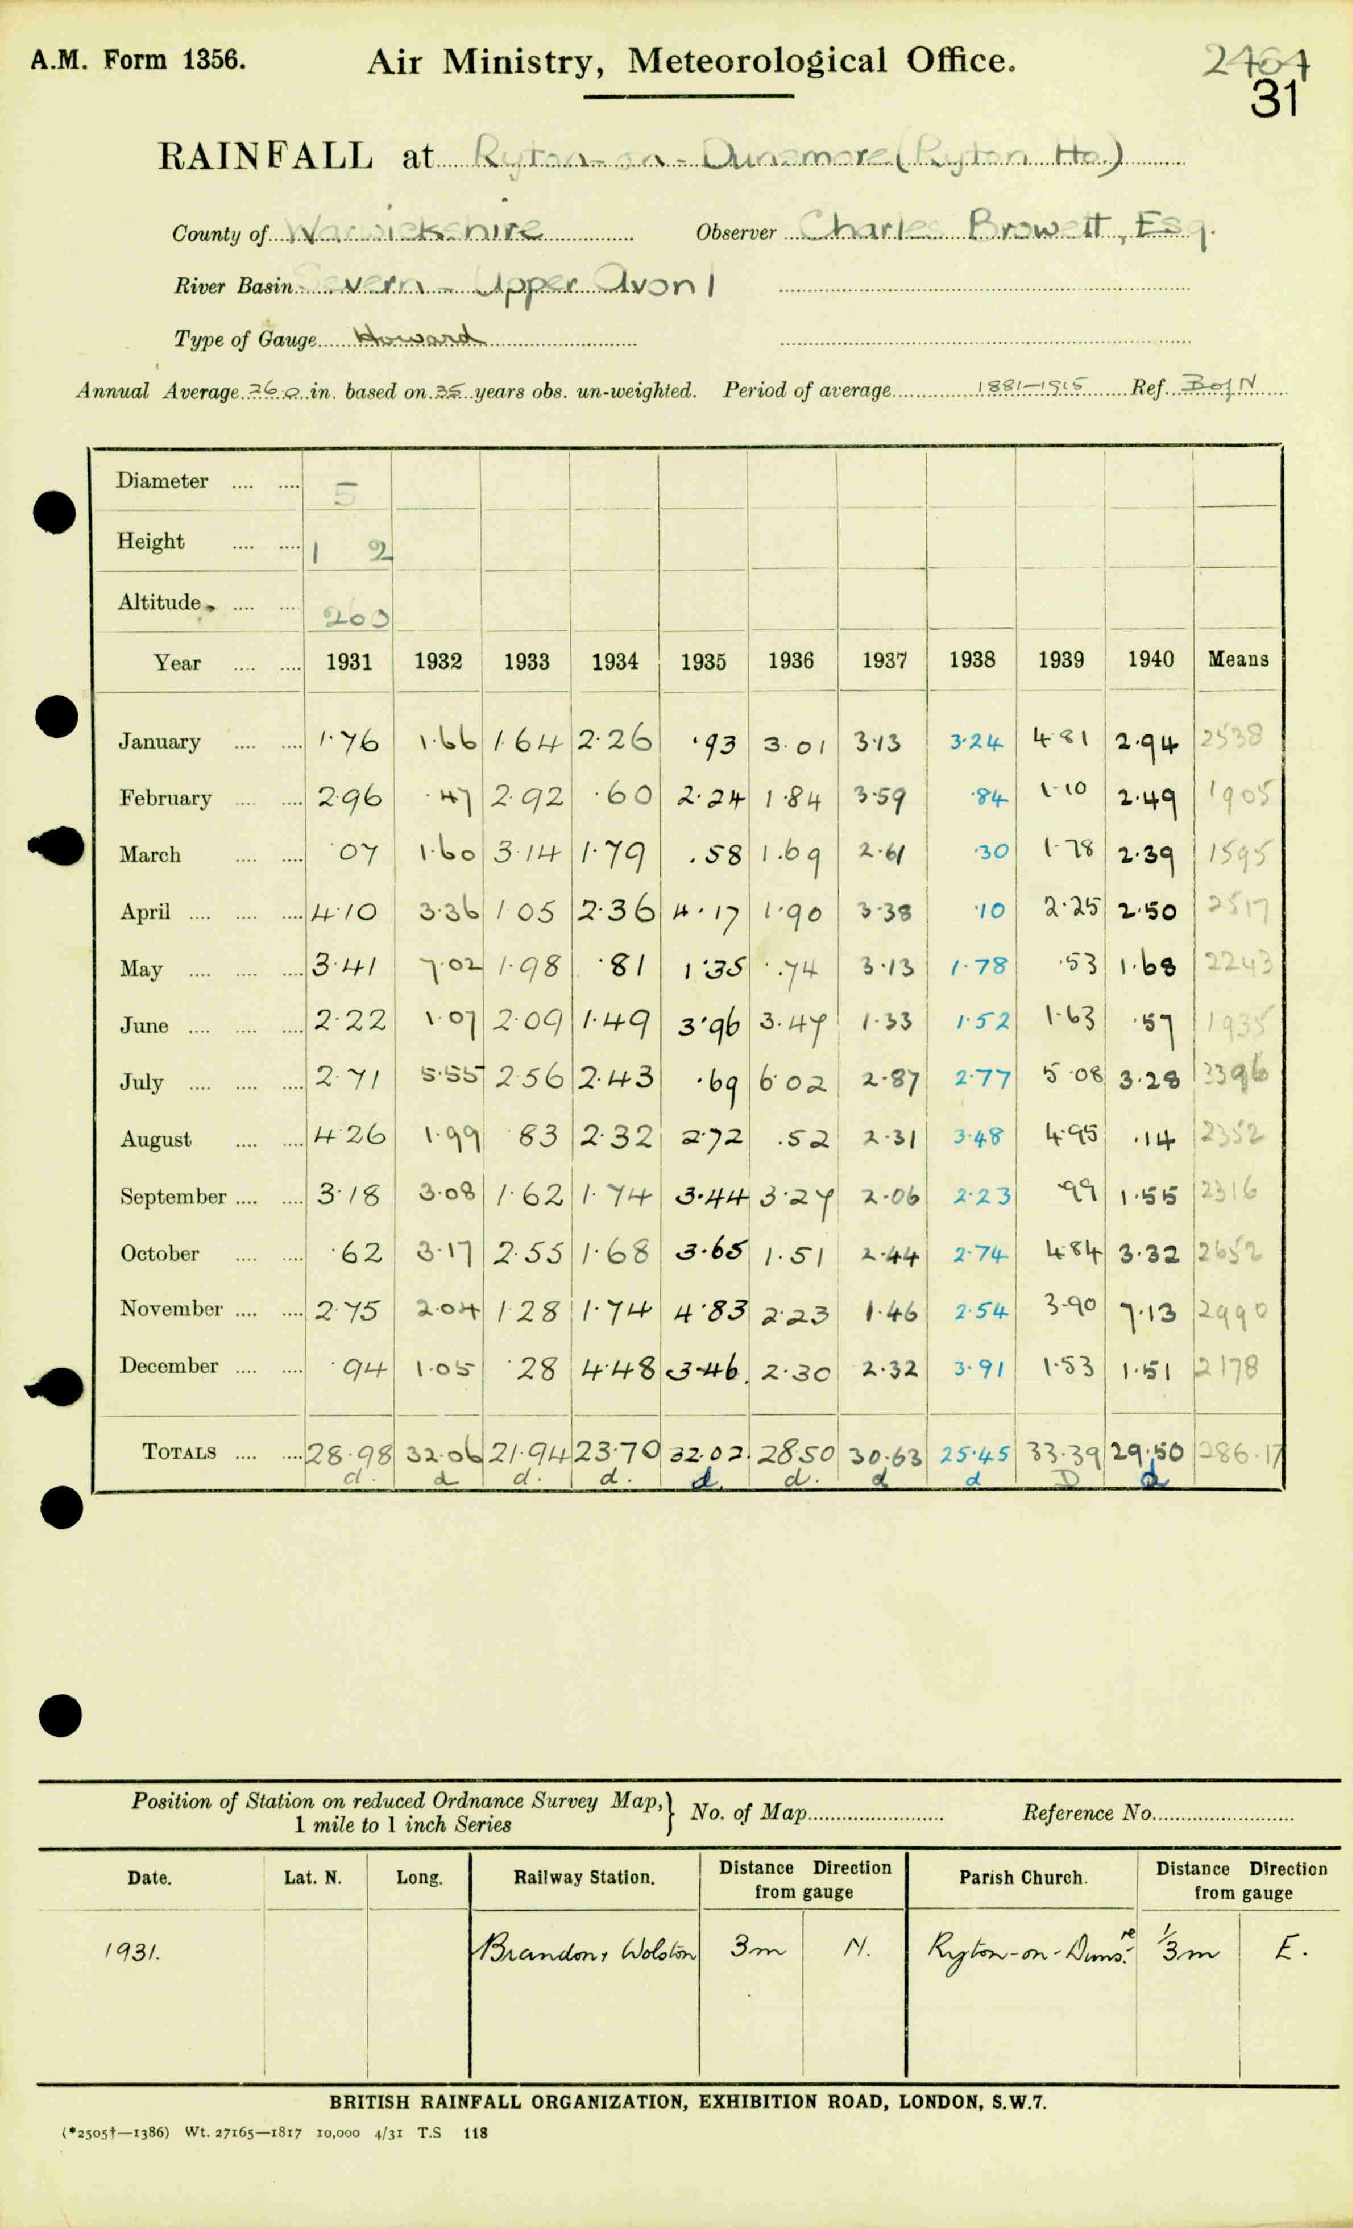 A.M. Form 1356. Air Ministry, Meteorological Office. 2464
31
RAINFALL at Ryton-on-Dunsmore (Ryton Ho.)
County of Warwickshire Observer Charles Browett, Esq.
River Basin Severn - Upper Avon 1
Type of Gauge Howard
Annual Average 26.0 in. based on 35 years obs. un-weighted. Period of average 1881-1915 Ref. B of N
Diameter 5
Height 1 2
Altitude 263
Year 1931 1932 1933 1934 1935 1936 1937 1938 1939 1940 Means
January 1.76 1.66 1.64 2.26 .93 3.01 3.13 3.24 4.81 2.94 2538
February 2.96 .47 2.92 .60 2.24 1.84 3.59 .84 1.10 2.49 1905
March .07 1.60 3.14 1.79 .58 1.69 2.61 .30 1.78 2.39 1595
April 4.10 3.36 1.05 2.36 4.17 1.90 3.38 .10 2.25 2.50 2517
May 3.41 7.02 1.98 .81 1.35 .74 3.13 1.78 .53 1.68 2243
June 2.22 1.07 2.09 1.49 3.96 3.47 1.33 1.52 1.63 .57 1935
July 2.71 5.55 2.56 2.43 .69 6.02 2.87 2.77 5.08 3.28 3396
August 4.26 1.99 .83 2.32 2.72 .52 2.31 3.48 4.95 .14 2352
September 3.18 3.08 1.62 1.74 3.44 3.27 2.06 2.23 .99 1.55 2316
October .62 3.17 2.55 1.68 3.65 1.51 2.44 2.74 4.84 3.32 2652
November 2.75 2.04 1.28 1.74 4.83 2.23 1.46 2.54 3.90 7.13 2990
December .94 1.05 .28 4.48 3.46 2.30 2.32 3.91 1.53 1.51 2178
TOTALS 28.98 32.06 21.94 23.70 32.02 28.50 30.63 25.45 33.39 29.50 286.17
d. d d. d. d. d. d d D d
Position of Station on reduced Ordnance Survey Map, } No. of Map Reference No.
1 mile to 1 inch Series
Date. Lat. N. Long. Railway Station. Distance Direction from gauge Parish Church. Distance Direction from gauge
1931. Brandon & Wolston 3m N. Ryton-on-Dunsre 1/3m E.
BRITISH RAINFALL ORGANIZATION, EXHIBITION ROAD, LONDON, S.W.7.
(*2505†—1386) Wt. 27165—1817 10,000 4/31 T.S 118